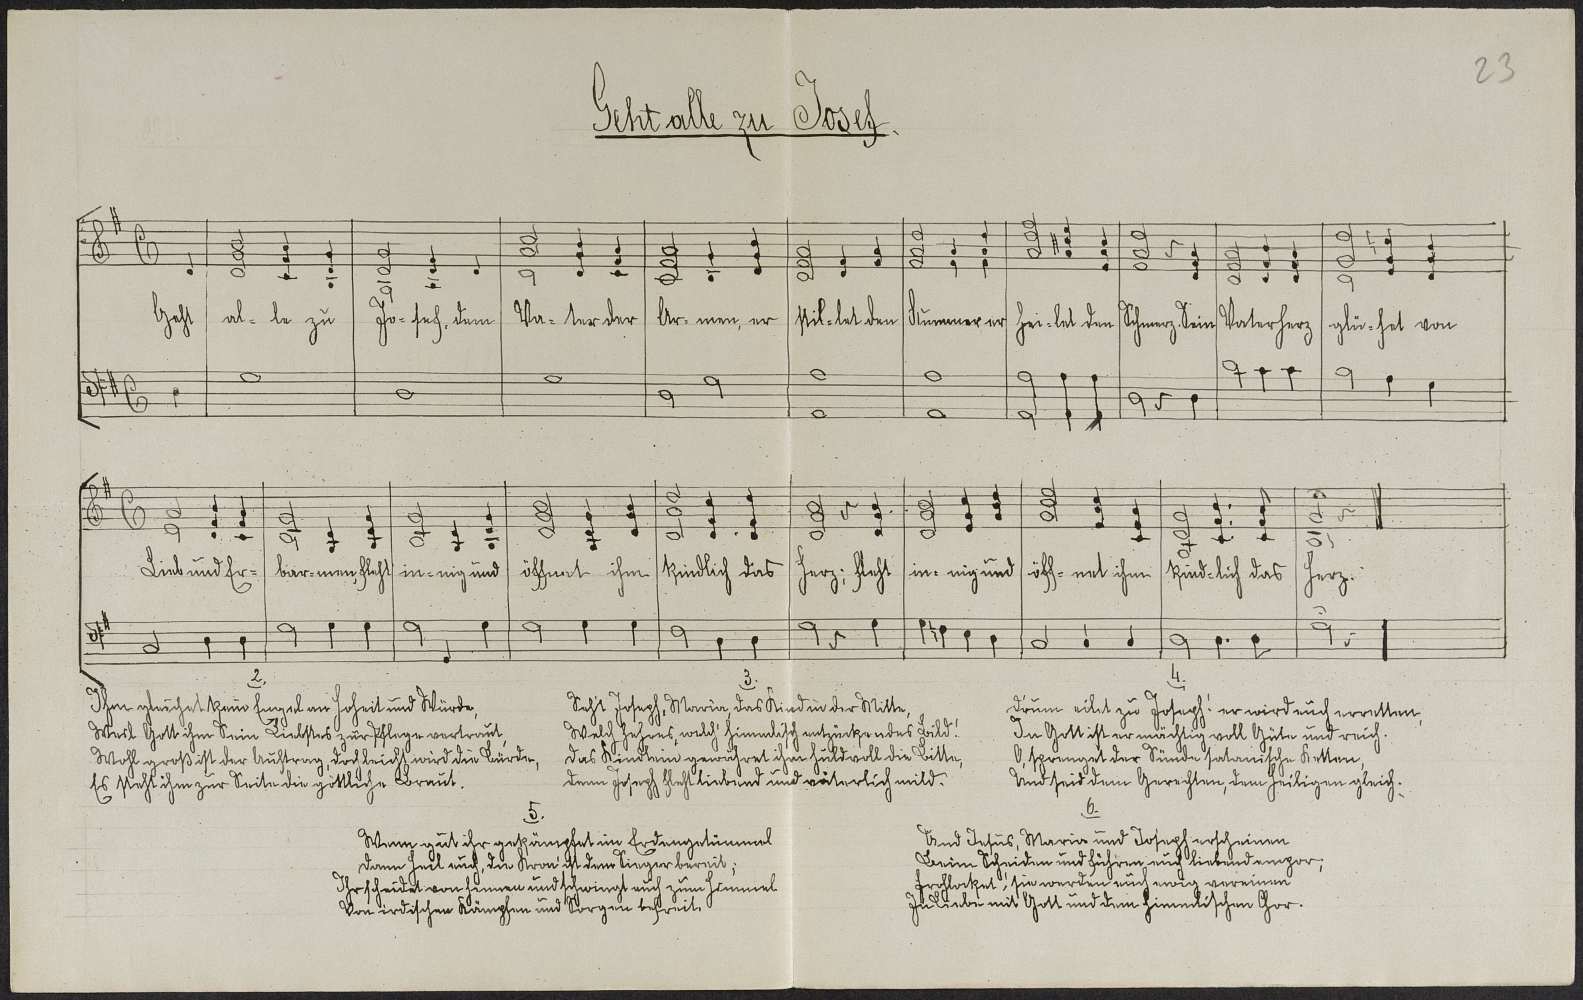 23
Geht alle zu Josef.
Geht al- le zu Jo- sef, dem Va- ter der Ar- men, er stil- let den Kummer er hei- let den Schmerz. Sein Vaterherz glü- het von
Lieb und Er- bar- men, fleht in- nig und öffnet ihm kindlich das Herz; fleht in- nig und öff- net ihm kind- lich das Herz.
2.
Ihm gleichet kein Engel an Hoheit und Würde,
Weil Gott ihm Sein Liebstes zur Pflege vertraut,
Wohl groß ist der Auftrag, doch leicht wird die Bürde,
Es steht ihm zur Seite die göttliche Braut.
3.
Seht Joseph, Maria, das Kind in der Mitte,
Welch hehres, welch' himmlisch entzückendes Bild!
Das Kindlein gewähret ihm huldvoll die Bitte,
Dem Joseph fleht liebend und väterlich mild.
4.
Drum eilet zu Joseph! er wird euch erretten,
In Gott ist er mächtig voll Güte und reich.
O, sprenget der Sünde satanische Ketten,
Und seid dem Gerechten, dem Heiligen gleich.
5.
Wenn gut ihr gekämpfet im Erdengetümmel
Dann Heil euch, die Kron' ist dem Sieger bereit;
Ihr scheidet von hinnen und schwingt euch zum Himmel
Von irdischen Kämpfen und Sorgen befreit.
6.
Und Jesus, Maria und Joseph erscheinen
Beim Scheiden und führen euch liebend empor;
Frohlocket! sie werden euch ewig vereinen
In Liebe mit Gott und dem himmlischen Chor.